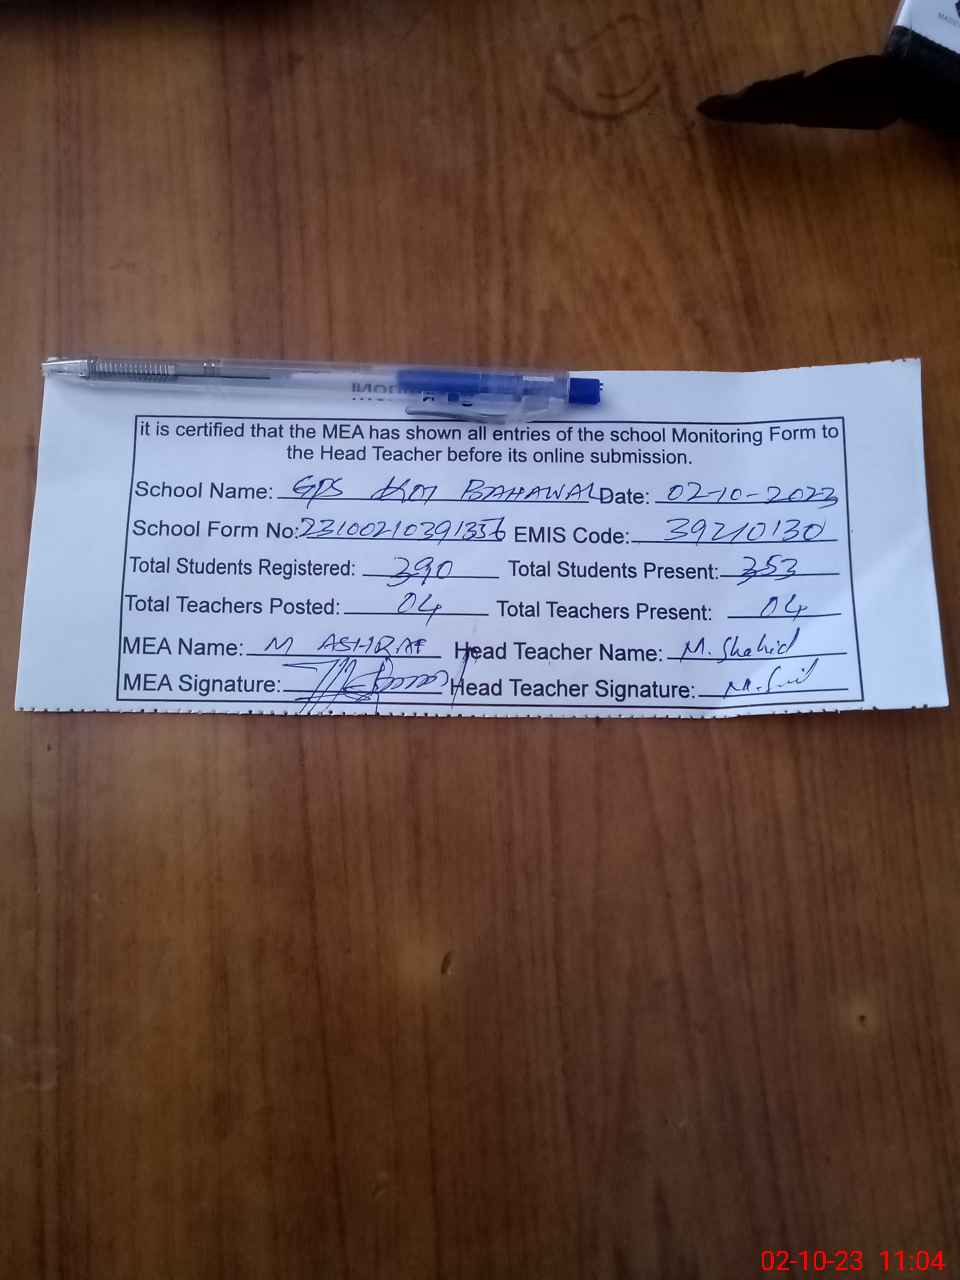 it is certified that the MEA has shown all entries of the school Monitoring Form to
the Head Teacher before its online submission.
School Name: GPS KOT BAHAWAL Date: 02-10-2023
School Form No: 23100210391356 EMIS Code: 39210130
Total Students Registered: 390 Total Students Present: 353
Total Teachers Posted: 04 Total Teachers Present: 04
MEA Name: M ASHRAF Head Teacher Name: M. Shahid
MEA Signature: Head Teacher Signature:
02-10-23 11:04